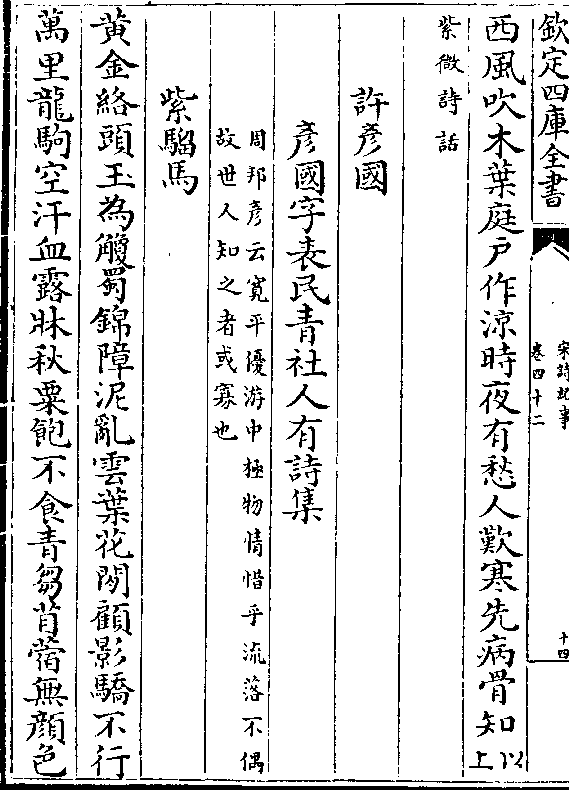 欽定四庫全書
宋詩紀事
卷四十二
十四
西風吹木葉庭戶作涼時夜有愁人歎寒先病骨知以上
紫微詩話
許彥國
彥國字表民青社人有詩集
周邦彥云寛平優游中極物情惜乎流落不偶
故世人知之者或寡也
紫騮馬
黄金絡頭玉為觼蜀錦障泥亂雲葉花閒顧影驕不行
萬里龍駒空汗血露牀秋粟飽不食青芻苜蓿無顔色